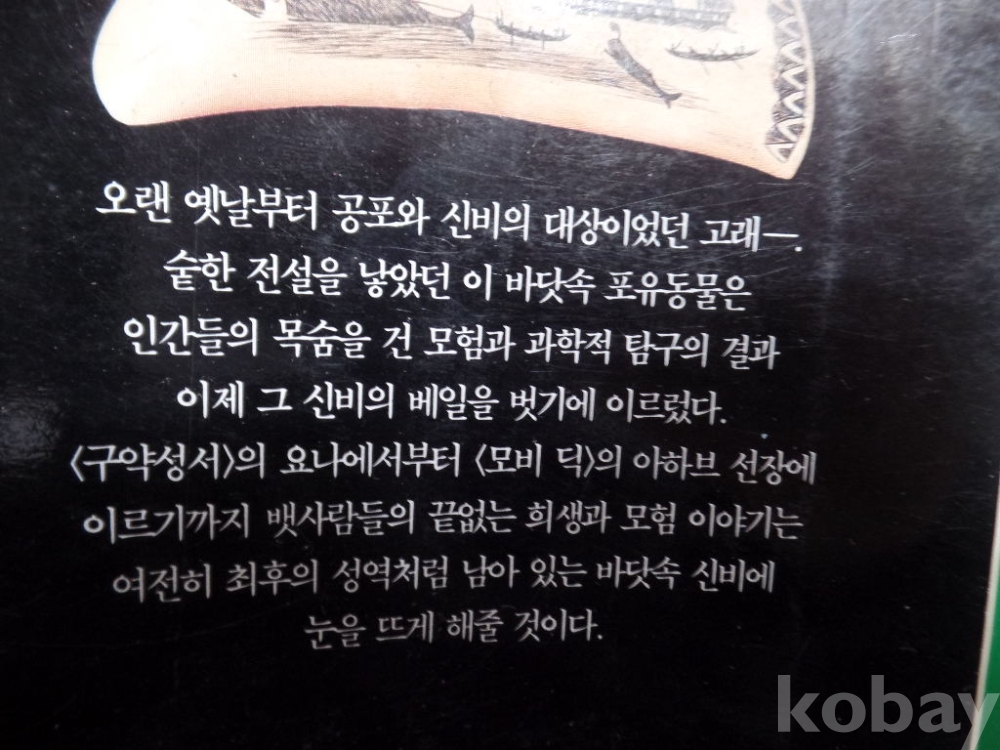 오랜 옛날부터 공포와 신비의 대상이었던 고래—.
숱한 전설을 낳았던 이 바닷속 포유동물은
인간들의 목숨을 건 모험과 과학적 탐구의 결과
이제 그 신비의 베일을 벗기에 이르렀다.
〈구약성서〉의 요나에서부터 〈모비 딕〉의 아하브 선장에
이르기까지 뱃사람들의 끝없는 희생과 모험 이야기는
여전히 최후의 성역처럼 남아 있는 바닷속 신비에
눈을 뜨게 해줄 것이다.
kobay